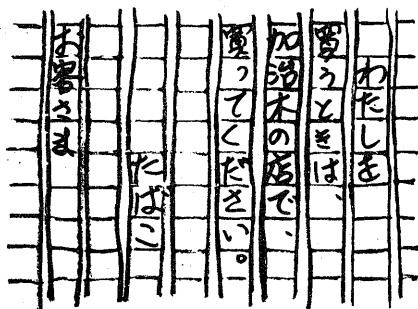 わたしを
買うときは、
加浩木の店で、
買ってください。
たばこ
お客さま